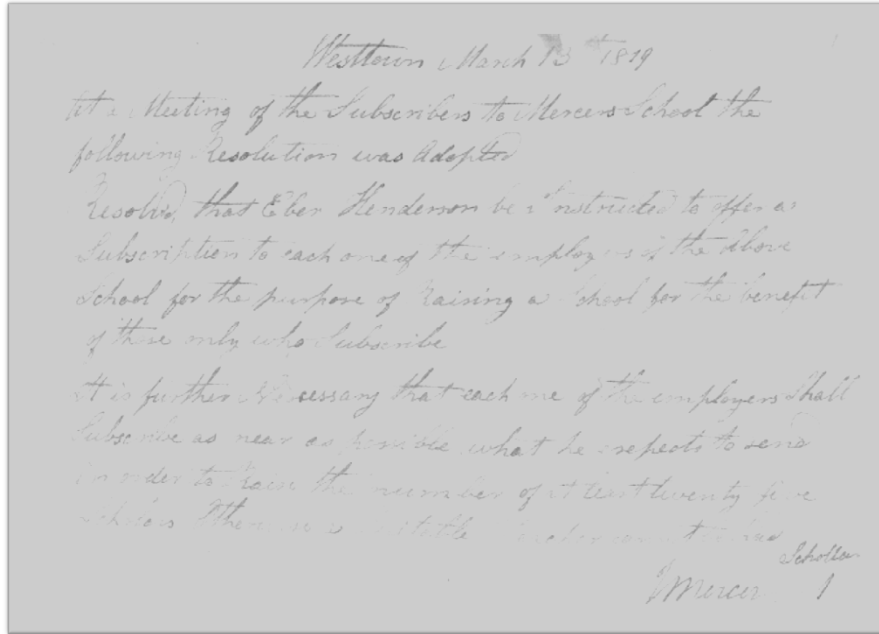 Westtown March 13th 1819
At a Meeting of the Subscribers to Mercers School the
following Resolution was Adopted
Resolved, that Eber Henderson be instructed to offer a
Subscription to each one of the employers of the Above
School for the purpose of Raising a School for the benefit
of those only who Subscribe
It is further Necessary that each one of the employers Shall
Subscribe as near as possible what he expects to send
in order to Raise the number of at least twenty five
Schollars
Mercer 1